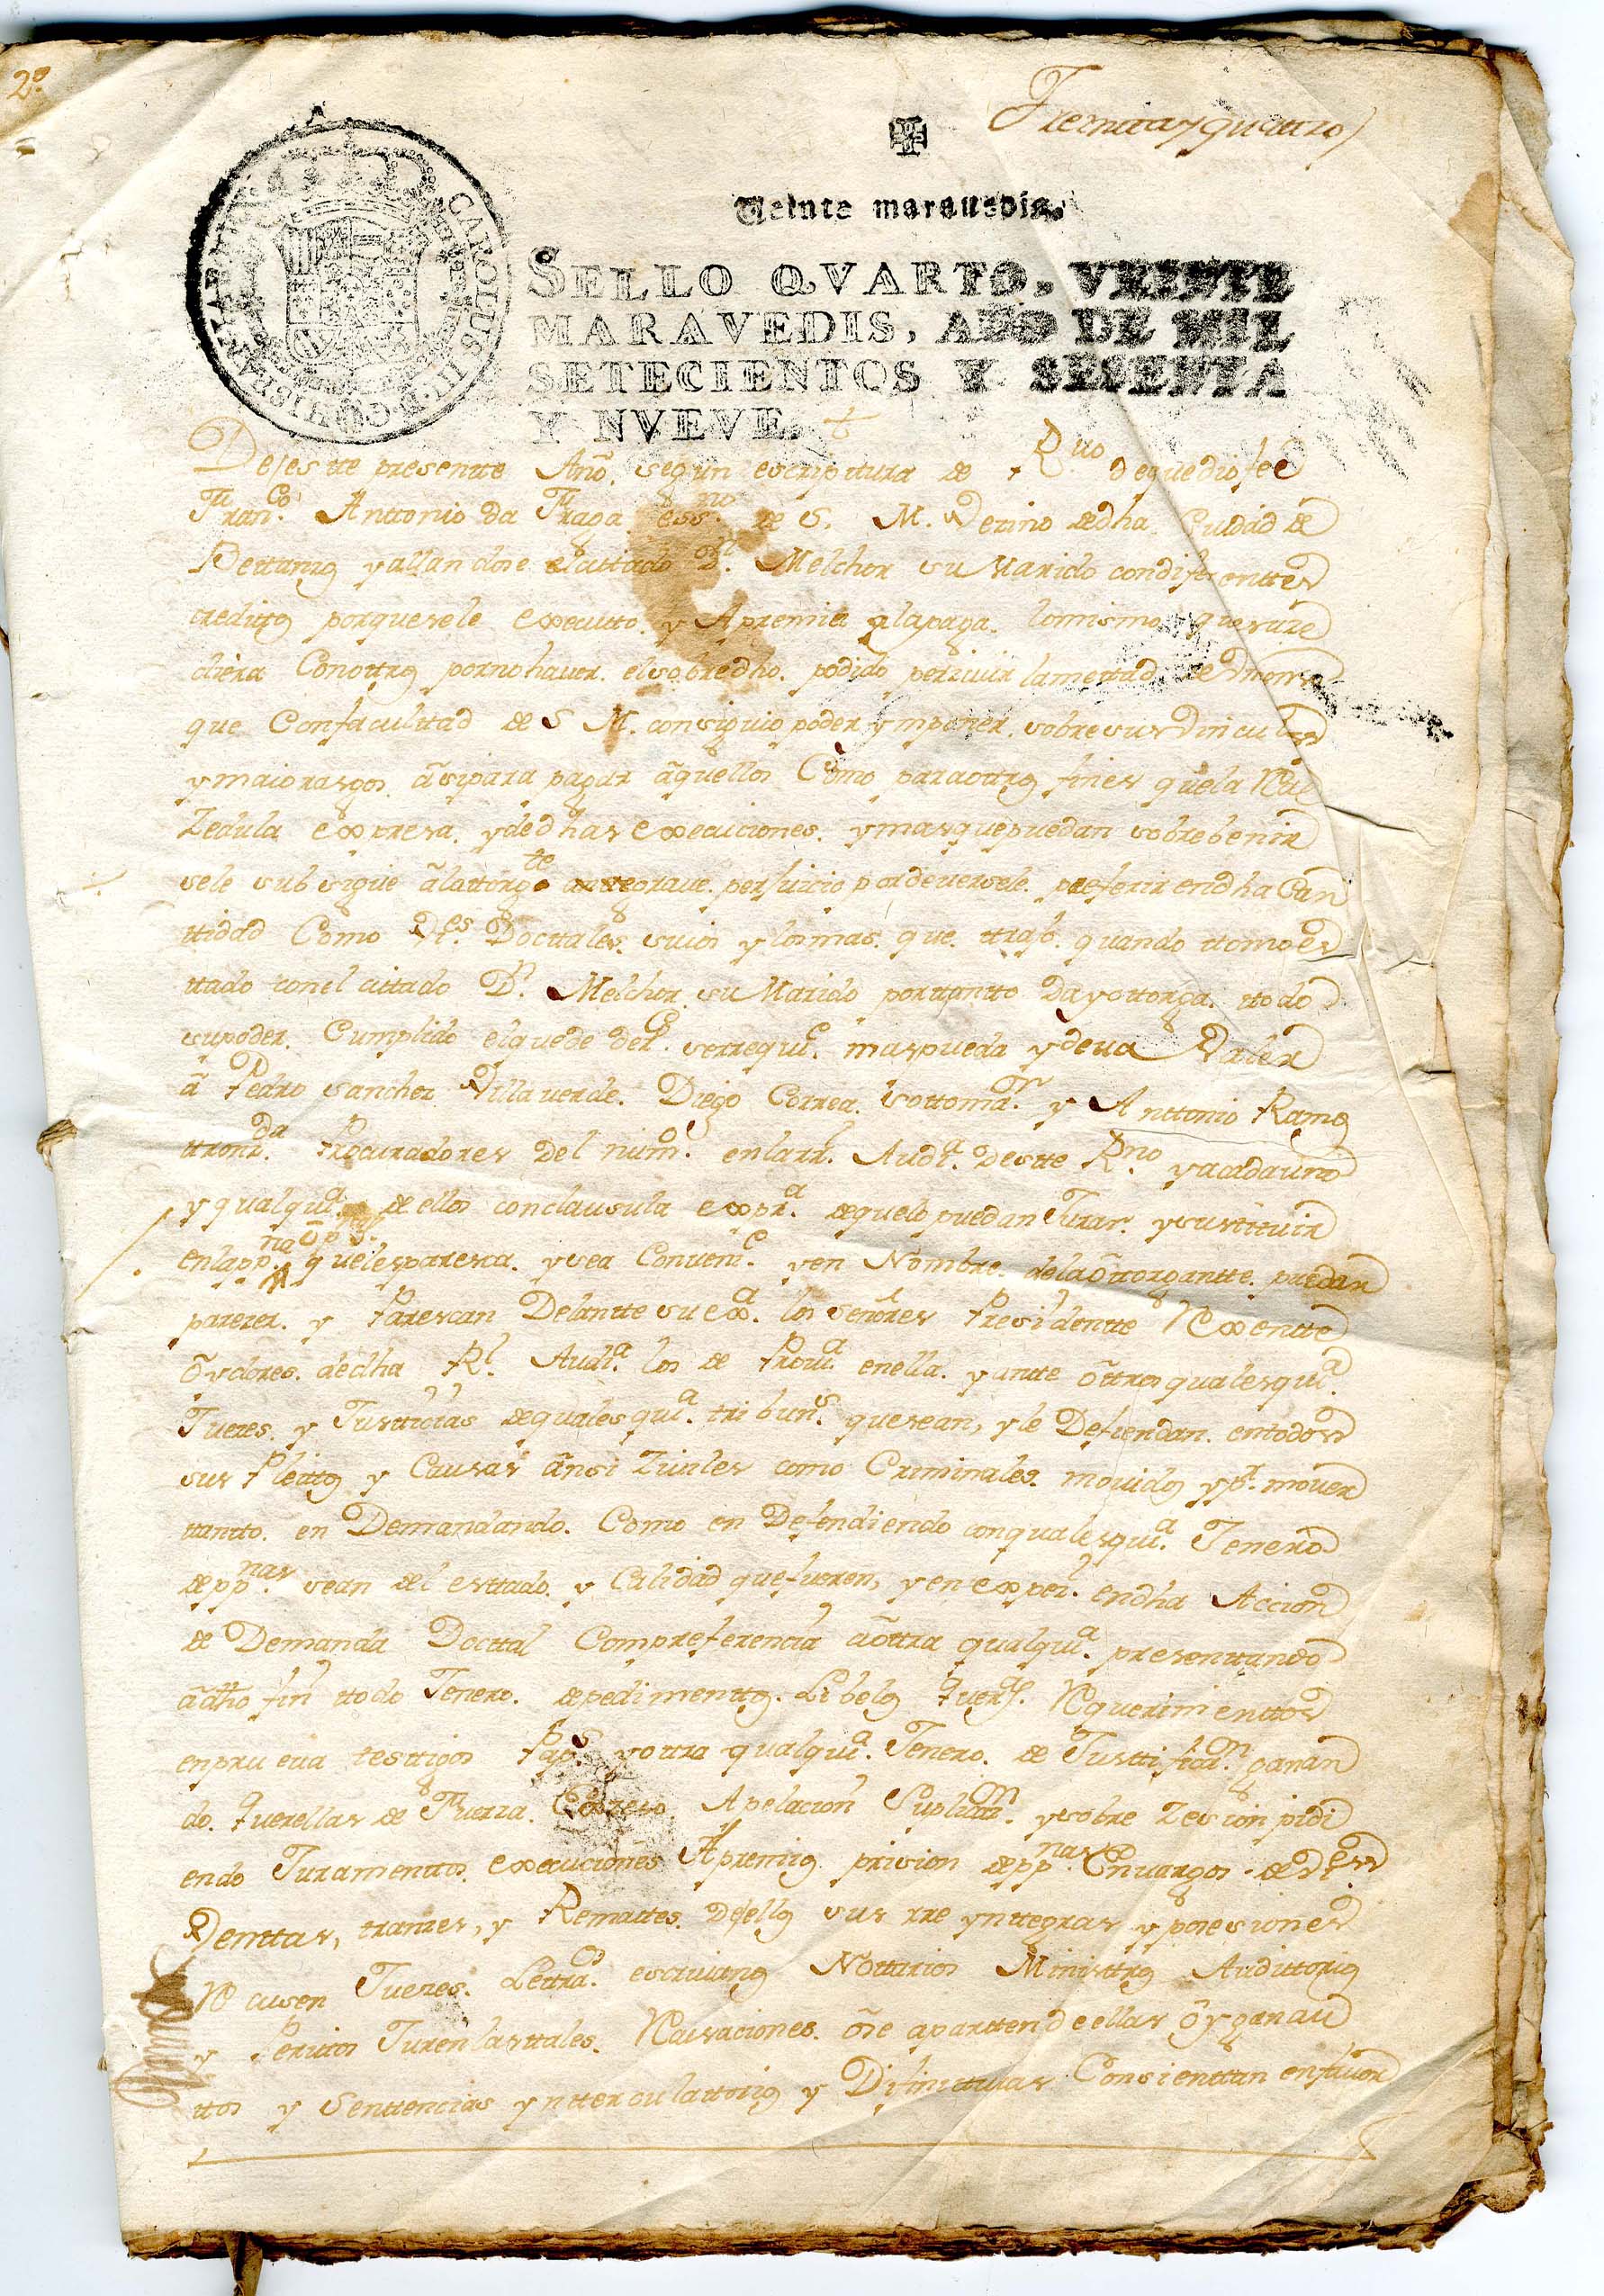 2º
Treinta y quattro
Veinte maravedis.
CAROLUS III D. G. HISPANIAR
SELLO QVARTO, VEINTE
MARAVEDIS, AÑO DE MIL
SETECIENTOS Y SESENTA
Y NVEVE.
Desestte presentte Año, segun escripttura de Rᵘᵒ de que dio fee
Franᶜᵒ. Anttonio da Fraga essⁿᵒ. de S. M. Vezino de dha Ciudad de
Bettanzos y allandose el cittado Dⁿ. Melchor su Marido con diferenttes
creditos por que se le Executto y Apremia a la paga. lo mismo que suze
diera Con ottros por no haver el sobredho. podido perzivir la mettad de
que Con facultad de S M. consiguio poder ymponer sobre sus Vinculos
y maiorasgos ãsi para pagar ãquellos Como para ottros fines que la Rˡ
Zedula Expresa. y de dhas Execuciones. y mas que puedan sobrebenir
sele subsigue ã la ottorgᵗᵉ grave perjuicio por deversele preferir en dha Can
ttidad Como Vⁱᵉˢ Dottales suios y los mas que ttrajo quando ttomo es
ttado con el cittado Dⁿ. Melchor su Marido por ttantto Da y ottorga ttodo
su poder Cumplido el que de derº. se rrequiᵉ. mas pueda y deva Valer
ã Pedro Sanchez Villaverde. Diego Correa Sottomaʳ. y Anttonio Ramos
ttronᵈᵃ. Procuradores del numº. en la rrˡ. Audᵃ. destte Rⁿᵒ y a cada uno
y qualquiᵃ de ellos con clausula expʳᵃ. de que lo puedan Jurar y susttituir
en la ppⁿᵃ que les paresca. y sea Conveniᵉ. y en Nombre de la õttorgantte puedan
parezer y Parescan Delantte su exᵃ. los señores Presidentte Rexentte
õydores de dha Rˡ Audᵃ. los de Provᵃ en ella. y antte õttros qualesquiᵃ.
Juezes. y Justticias de qualesquiᵃ. tribunˢ. que sean, y le Defiendan en todos
sus Pleittos y Causas ãnsi Ziviles como Criminales movidos y pᵃ. mover
ttantto en Demandando. Como en Defendiendo con qualesquiᵃ. Jenero
de ppⁿᵃˢ sean del esttado y Calidad que fueren, y en expeˡ. en dha Accion
de Demanda Dottal Com preferencia ã õttra qualquiᵃ presenttando
ã dho fin ttodo Jenero de pedimenttos. Libelos Querˢ. Requerimienttos
en prueva testigos Papˢ y ottra qualquiᵃ. Jenero de Justtificaⁿ. ganan
do Querellas de Fuerza. Exceso. Apelacion Suplicaⁿ. y sobre Zesion pidi
endo Juramenttos. execuciones Apremios prision de ppⁿᵃˢ Envargos de Vⁱᵉˢ
Venttas, tranzes, y Remattes. de ellos sus rre ynttegras y posesiones
Recusen Juezes. Lettraᵒˢ escrivanos Nottarios Ministtros Audittorios
y Perittos Juren las ttales. Recusaciones. õse apartten de ellas õygan au
ttos y Senttencias ynttercolattorias y Difinittivas Consienttan en favor